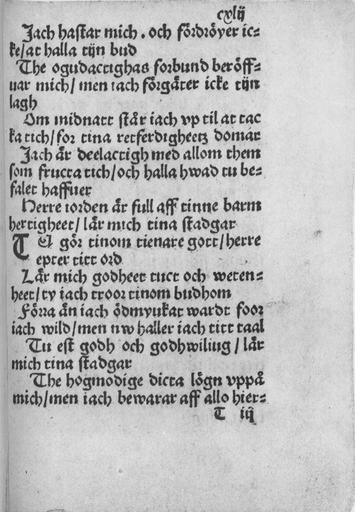 cxlij
Jach hastar mich . och fördröyer ic-
ke/at halla tijn bud
The ogudactighas forbund beröff-
uar mich/men iach förgäter icke tijn
lagh
Om midnatt står iach vp til at tac
ka tich/for tina retferdigheetz domar
Jach är deelactigh med allom them
som fructa tich/och halla hwad tu be-
falet haffuer
Herre iorden är full aff tinne barm
hertigheet/lär mich tina stadgar
TV gör tinom tienare gott/herre
epter titt ord
Lär mich godheet tuct och weten-
heet/ty iach troor tinom budhom
Förra än iach ödmyukat wardt foor
iach wild/men nw haller iach titt taal
Tu est godh och godhwiliug/lär
mich tina stadgar
The hogmodige dicta lögn vppå
mich/men iach bewarar aff allo hier-
T iij